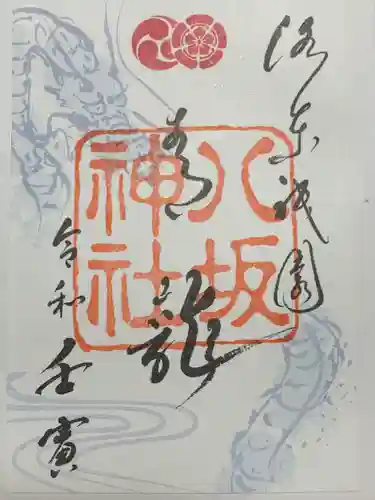 洛東祇園
青龍
八坂
神社
令和
壬寅